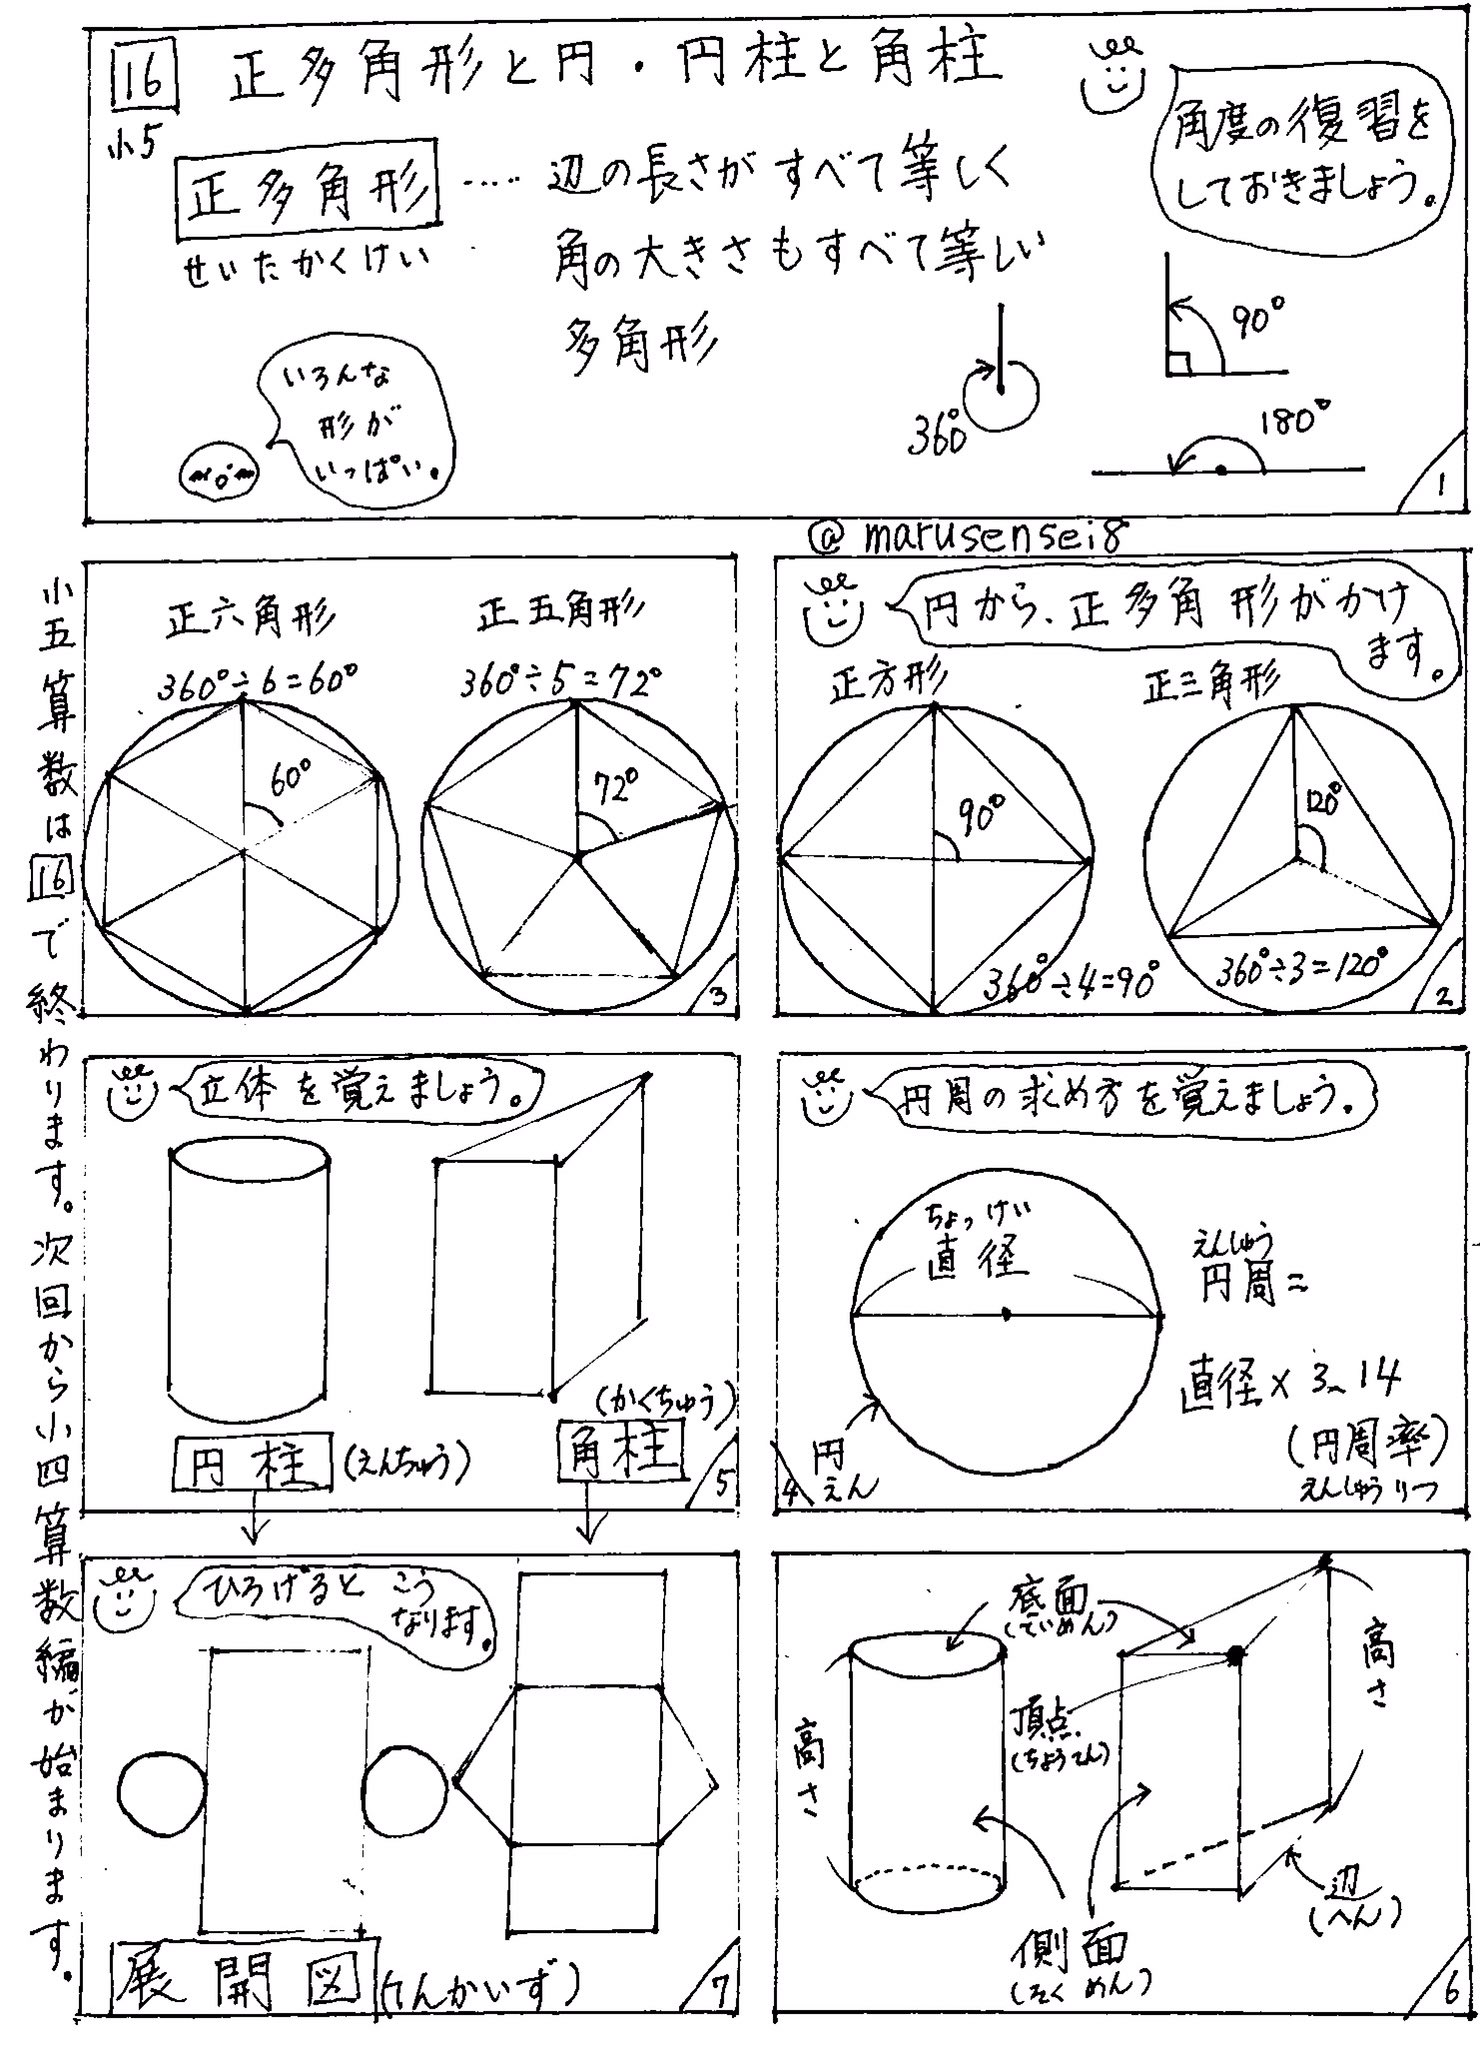 16
小5
正多角形と円・円柱と角柱
角度の復習を
しておきましょう。
正多角形
せいたかくけい
‥‥ 辺の長さがすべて等しく
角の大きさもすべて等しい
多角形
いろんな
形が
いっぱい。
360°
90°
180°
1
@marusensei8
円から、正多角形がかけ
ます。
正三角形
120°
360°÷3=120°
正方形
90°
360°÷4=90°
2
正五角形
360°÷5=72°
72°
正六角形
360°÷6=60°
60°
3
円周の求め方を覚えましょう。
ちょっけい
直径
えんしゅう
円周=
直径×3.14
(円周率)
えんしゅうりつ
円
えん
4
立体を覚えましょう。
円柱(えんちゅう)
(かくちゅう)
角柱
5
底面
(ていめん)
高さ
頂点
(ちょうてん)
高さ
側面
(そくめん)
辺
(へん)
6
ひろげるとこう
なります。
展開図(てんかいず)
7
小五算数は16で終わります。次回から小四算数編が始まります。